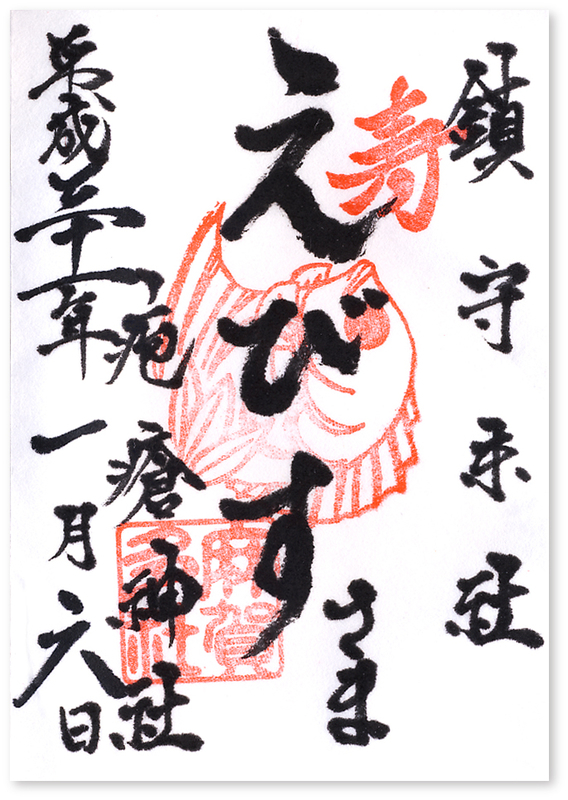 鎮守末社
寿
えびす
さま
疱瘡神社
平成二十一年一月六日